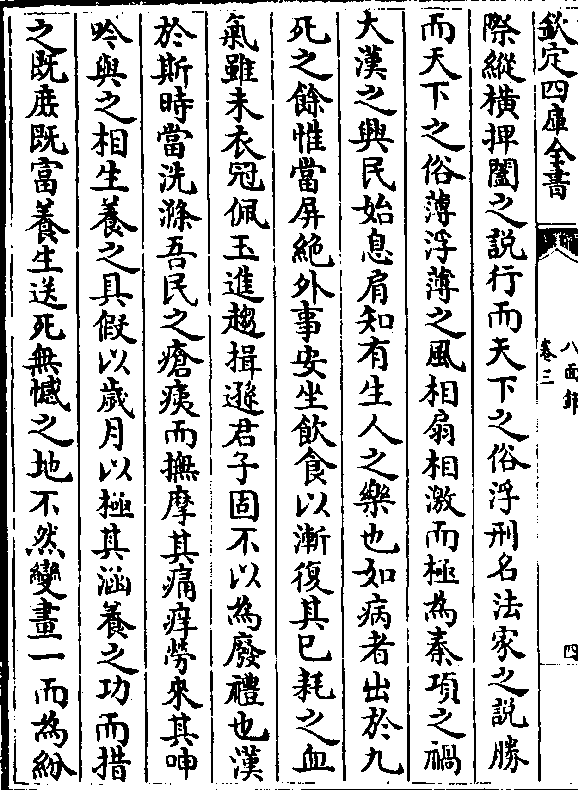 欽定四庫全書
八面鋒
卷三
四
際縱橫捭闔之説行而天下之俗浮刑名法家之説勝
而天下之俗薄浮薄之風相扇相激而極為秦項之禍
大漢之興民始息肩知有生人之樂也如病者出於九
死之餘惟當屏絶外事安坐飲食以漸復其已耗之血
氣雖未衣冠佩玉進趨揖遜君子固不以為廢禮也漢
於斯時當洗滌吾民之瘡痍而撫摩其痛痒勞來其呻
吟與之相生養之具假以歲月以極其涵養之功而措
之既庶既富養生送死無憾之地不然變畫一而為紛